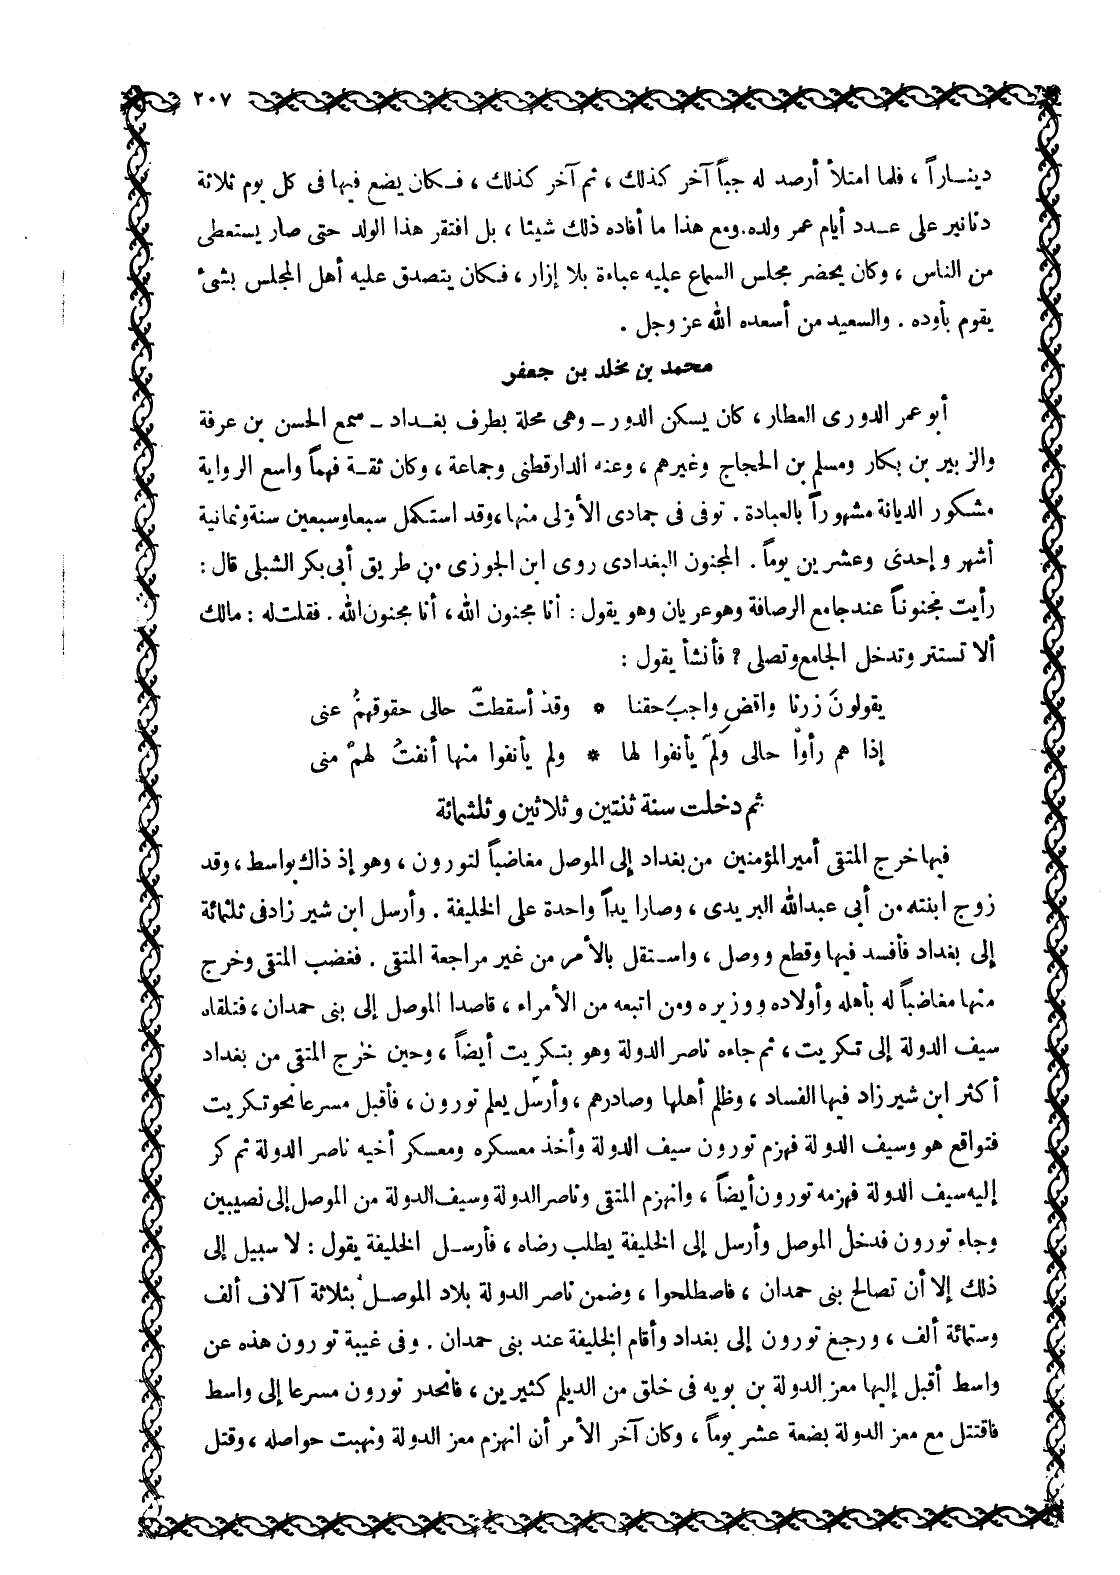 ٢٠٧
دينـاراً ، فلما امتلأ أرصد له جباً آخر كذلك ، ثم آخر كذلك ، فـكان يضع فيها فى كل يوم ثلاثة
دنانير على عـدد أيام عمر ولده. ومع هذا ما أفاده ذلك شيئا ، بل افتقر هذا الولد حتى صار يستعطى
من الناس ، وكان يحضر مجلس السماع عليه عباءة بلا إزار ، فـكان يتصدق عليه أهل المجلس بشئ
يقوم بأوده . والسعيد من أسعده الله عز وجل .
محمد بن مخلد بن جعفر
أبو عمر الدورى العطار ، كان يسكن الدور ـ وهى محلة بطرف بغـداد ـ سمع الحسن بن عرفة
والزبير بن بكار ومسلم بن الحجاج وغيرهم ، وعنه الدارقطنى وجماعة ، وكان ثقـة فهماً واسع الرواية
مشكور الديانة مشهوراً بالعبادة . توفى فى جمادى الأولى منها ، وقد استكمل سبعا وسبعين سنة وثمانية
أشهر وإحدى وعشرين يوماً . المجنون البغدادى روى ابن الجوزى من طريق أبى بكر الشبلى قال :
رأيت مجنوناً عند جامع الرصافة وهو عريان وهو يقول : أنا مجنون الله ، أنا مجنون الله . فقلت له : مالك
ألا تستتر وتدخل الجامع وتصلى ؟ فأنشأ يقول :
يقولونَ زرنا واقضِ واجبَ حقنا * وقدْ أسقطتْ حالى حقوقهمُ عنى
إذا هم رأوْا حالى ولمْ يأنفوا لها * ولم يأنفوا منها أنفتُ لهمْ منى
ثم دخلت سنة ثنتين وثلاثين وثلثمائة
فيها خرج المتقى أمير المؤمنين من بغداد إلى الموصل مغاضباً لتورون ، وهو إذ ذاك بواسط ، وقد
زوج ابنته من أبى عبدالله البريدى ، وصارا يداً واحدة على الخليفة . وأرسل ابن شير زاد فى ثلثمائة
إلى بغداد فأفسد فيها وقطع ووصل ، واسـتقل بالأمر من غير مراجعة المتقى . فغضب المتقى وخرج
منها مغاضباً له بأهله وأولاده ووزيره ومن اتبعه من الأمراء ، قاصدا الموصل إلى بنى حمدان ، فتلقاه
سيف الدولة إلى تكريت ، ثم جاءه ناصر الدولة وهو بتكريت أيضاً ، وحين خرج المتقى من بغداد
أكثر ابن شير زاد فيها الفساد ، وظلم أهلها وصادرهم ، وأرسل يعلم تورون ، فأقبل مسرعا نحو تكريت
فتواقع هو وسيف الدولة فهزم تورون سيف الدولة وأخذ معسكره ومعسكر أخيه ناصر الدولة ثم كر
إليه سيف الدولة فهزمه تورون أيضاً ، وانهزم المتقى وناصر الدولة وسيف الدولة من الموصل إلى نصيبين
وجاء تورون فدخل الموصل وأرسل إلى الخليفة يطلب رضاه ، فأرسـل الخليفة يقول : لا سبيل إلى
ذلك إلا أن تصالح بنى حمدان ، فاصطلحوا ، وضمن ناصر الدولة بلاد الموصـل بثلاثة آلاف ألف
وستمائة ألف ، ورجع تورون إلى بغداد وأقام الخليفة عند بنى حمدان . وفى غيبة تورون هذه عن
واسط أقبل إليها معز الدولة بن بويه فى خلق من الديلم كثيرين ، فانحدر تورون مسرعا إلى واسط
فاقتتل مع معز الدولة بضعة عشر يوماً ، وكان آخر الأمر أن انهزم معز الدولة ونهبت حواصله ، وقتل